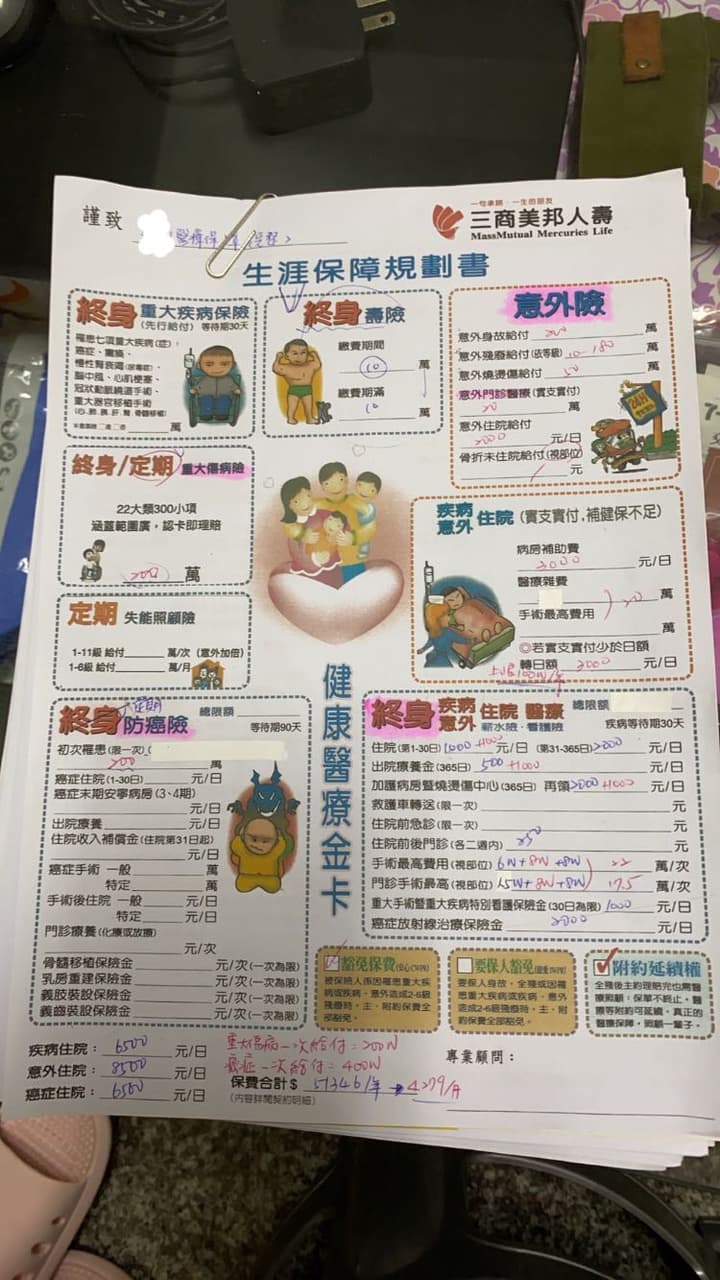 謹致
醫療保
一句承諾‧一生的朋友
三商美邦人壽
MassMutual Mercuries Life
生涯保障規劃書
終身 重大疾病保險
(先行給付) 等待期30天
罹患七項重大疾病(症):
癌症、癱瘓、
慢性腎衰竭(尿毒症)、
腦中風、心肌梗塞、
冠狀動脈繞道手術、
重大器官移植手術
(心、肺、胰、肝、腎、骨髓移植)
萬
終身壽險
繳費期間
10 萬
繳費期滿
10 萬
意外險
意外身故給付 200 萬
意外殘廢給付(依等級) 10-180 萬
意外燒燙傷給付 50 萬
意外門診醫療(實支實付)
20 萬
意外住院給付
2000 元/日
骨折未住院給付(視部位)
元
24H
終身/定期 重大傷病險
22大類300小項
涵蓋範圍廣,認卡即理賠
200 萬
定期 失能照顧險
1-11級 給付 萬/次 (意外加倍)
1-6級 給付 萬/月
疾病
意外 住院 (實支實付,補健保不足)
病房補助費
3000 元/日
醫療雜費
20 萬
手術最高費用
萬
◎若實支實付少於日額
轉日額 3000 元/日
上限100W/年
健康醫療金卡
終身 定期 防癌險 總限額
等待期90天
初次罹患(限一次)
200 萬
癌症住院(1-30日) 元/日
癌症末期安寧病房(3、4期)
元/日
出院療養 元/日
住院收入補償金(住院第31日起)
元/日
癌症手術 一般 萬
特定 萬
手術後住院 一般 元/日
特定 元/日
門診療養(化療或放療)
元/次
骨髓移植保險金 元/次(一次為限)
乳房重建保險金 元/次(一次為限)
義肢裝設保險金 元/次(一次為限)
義齒裝設保險金 元/次(一次為限)
終身 疾病
意外 住院 醫療 總限額
薪水險‧看護險 疾病等待期30天
住院(第1-30日) 1000 +1000 元/日 (第31-365日) 2000 元/日
出院療養金(365日) 500 +1000 元/日
加護病房暨燒燙傷中心(365日) 再領 2000 +1000 元/日
救護車轉送(限一次) 元
住院前急診(限一次) 元
住院前後門診(各二週內) 250 元
手術最高費用(視部位) 6W+8W+8W 22 萬/次
門診手術最高(視部位) 1.5W+8W+8W 17.5 萬/次
重大手術暨重大疾病特別看護保險金(30日為限) 1000 元/日
癌症放射線治療保險金 2000 元/日
豁免保費(安心CARE)
被保險人係因罹患重大疾病或疾病、意外造成2-6級殘廢時,主、附約保費全部豁免。
要保人豁免
要保人身故、全殘或因罹患重大疾病或疾病、意外造成2-6級殘廢時,主、附約保費全部豁免。
附約延續權
全殘後主約理賠完也需醫療照顧,保單不終止,醫療等附約可延續,真正的醫療保障,照顧一輩子。
疾病住院: 6500 元/日
意外住院: 8500 元/日
癌症住院: 6500 元/日
重大傷病一次給付=200W
癌症一次給付=400W
保費合計$ 51346/年 → 4279/月
(內容詳閱契約明細)
專業顧問: